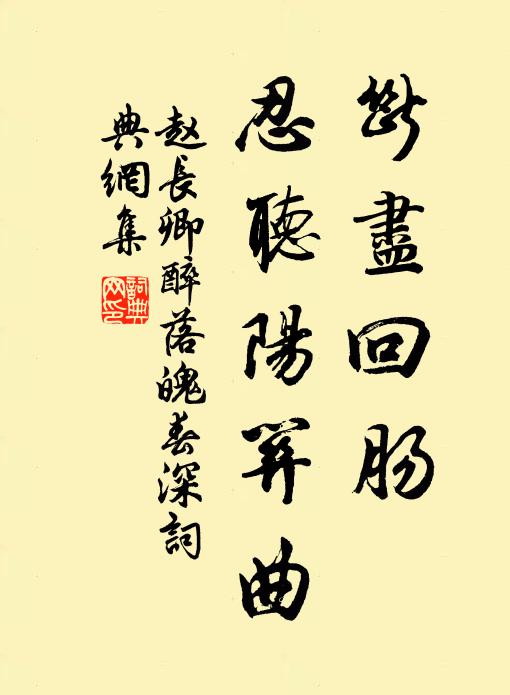 斷盡回肠
忍聽陽關曲
赵長卿醉落魄春深詞
典網集
詞典
网印